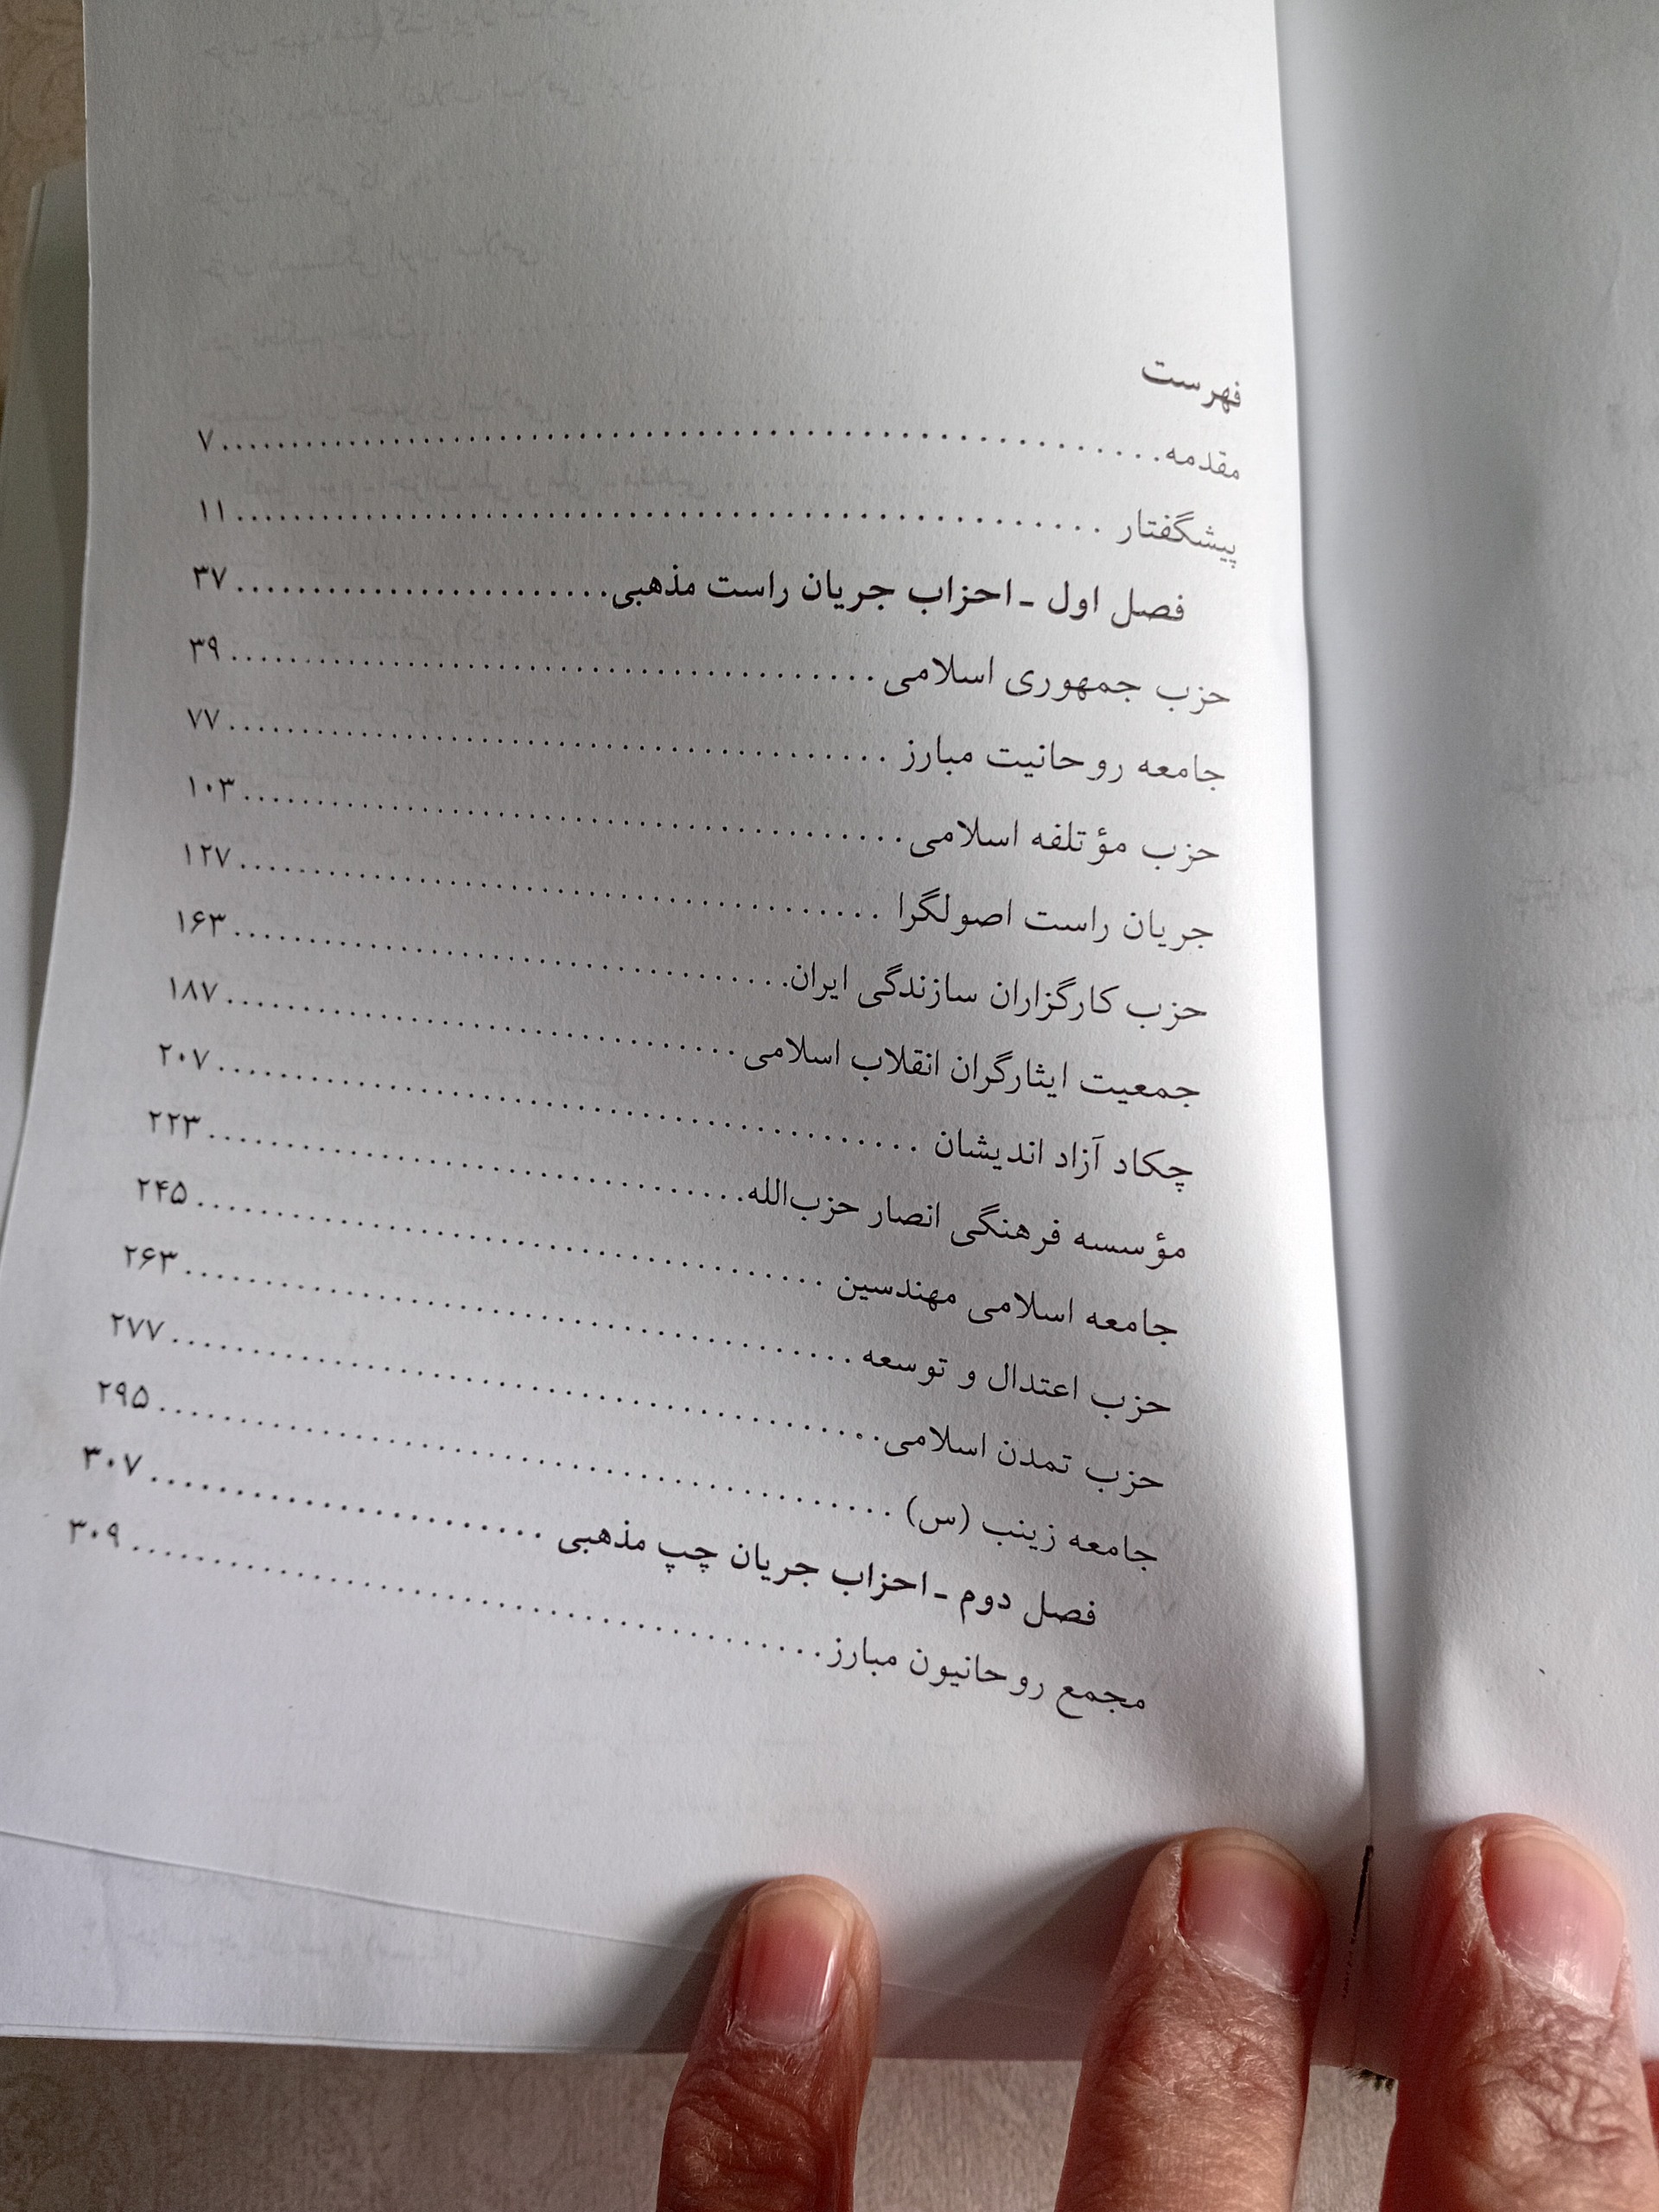 فهرست
مقدمه ........ ۷
پیشگفتار ........ ۱۱
فصل اول ـ احزاب جریان راست مذهبی ........ ۳۷
حزب جمهوری اسلامی ........ ۳۹
جامعه روحانیت مبارز ........ ۷۷
حزب مؤتلفه اسلامی ........ ۱۰۳
جریان راست اصولگرا ........ ۱۲۷
حزب کارگزاران سازندگی ایران ........ ۱۶۳
جمعیت ایثارگران انقلاب اسلامی ........ ۱۸۷
چکاد آزاد اندیشان ........ ۲۰۷
مؤسسه فرهنگی انصار حزب‌الله ........ ۲۲۳
جامعه اسلامی مهندسین ........ ۲۴۵
حزب اعتدال و توسعه ........ ۲۶۳
حزب تمدن اسلامی ........ ۲۷۷
جامعه زینب (س) ........ ۲۹۵
فصل دوم ـ احزاب جریان چپ مذهبی ........ ۳۰۷
مجمع روحانیون مبارز ........ ۳۰۹